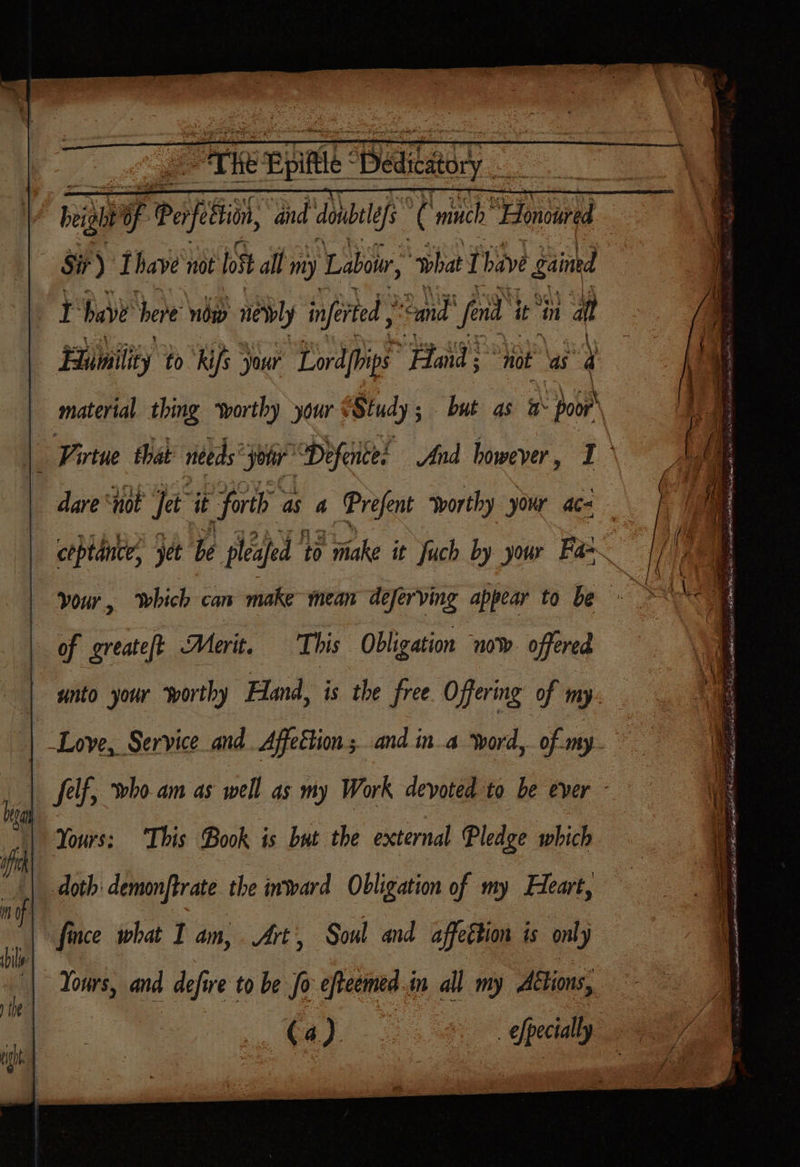 The Epiſtle Dedicatory
height of Perfection, and doubtleſs (much Honoured
Sir) I have not loſt all my Labour, what I have gained
I have here now newly inſerted, and ſend it in all
Humility to kiſs your Lordſhips Hand; not as a
material thing worthy your Study; but as a poor
Virtue that needs your Defence: And however, I
dare not ſet it forth as a Preſent worthy your ac-
ceptance, yet be pleaſed to make it ſuch by your Fa-
vour, which can make mean deſerving appear to be
of greateſt Merit. This Obligation now offered
unto your worthy Hand, is the free Offering of my
Love, Service and Affection; and in a word, of my
ſelf, who am as well as my Work devoted to be ever
Yours: This Book is but the external Pledge which
doth demonſtrate the inward Obligation of my Heart,
ſince what I am, Art, Soul and affection is only
Yours, and deſire to be ſo eſteemed in all my Actions,
(a) eſpecially
began
in of
the
right